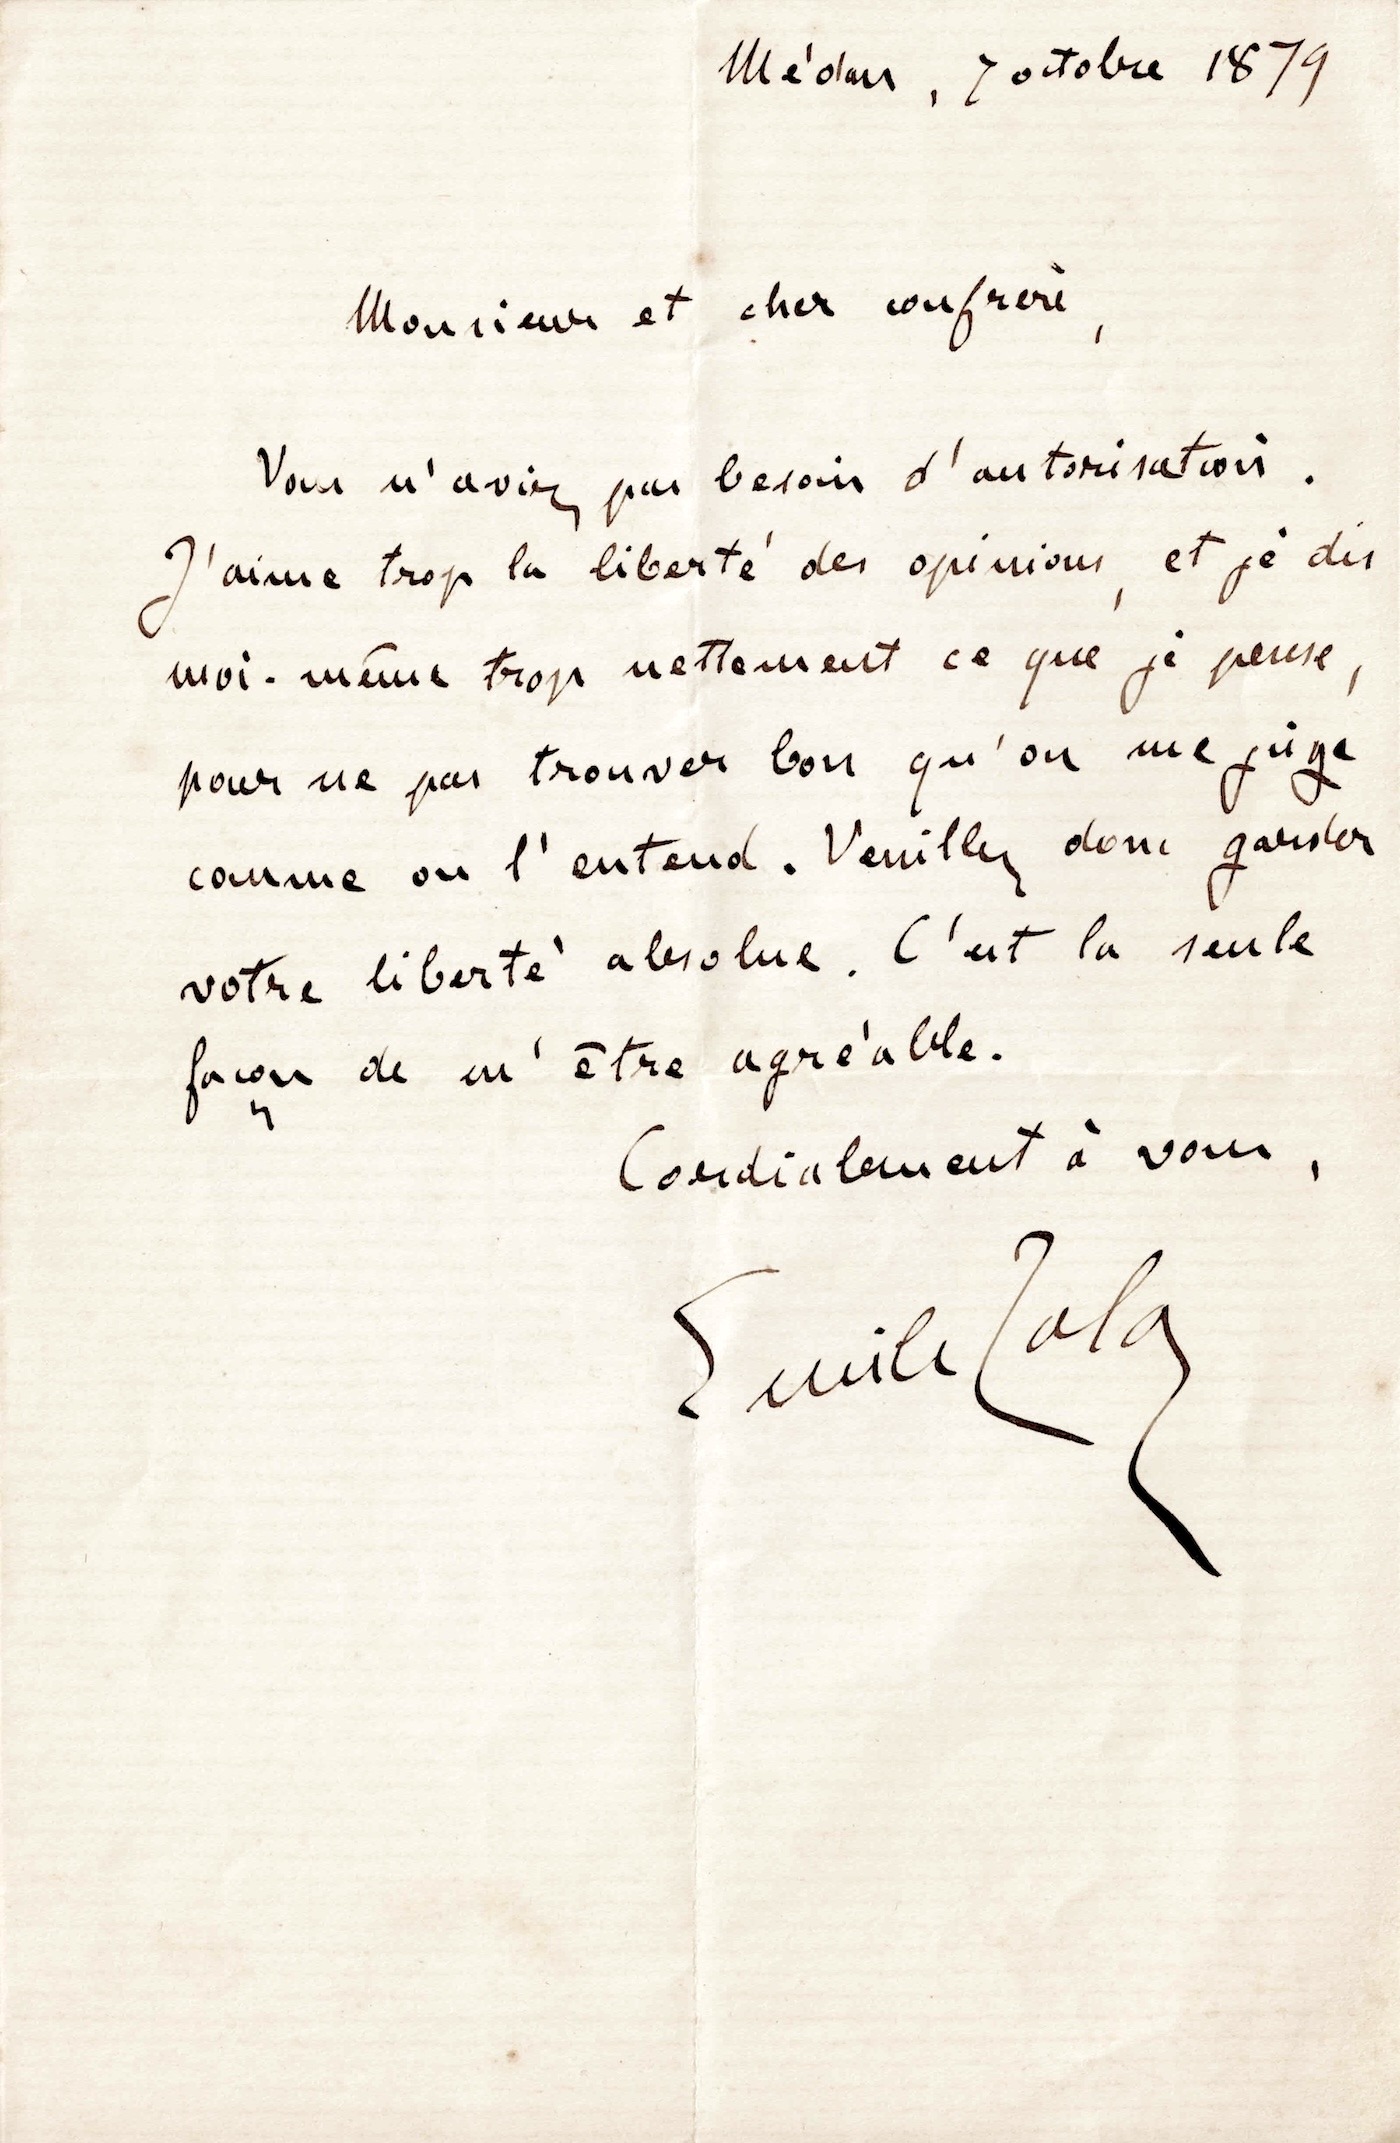 Médan, 7 octobre 1879
Monsieur et cher confrère,
Vous n'aviez pas besoin d'autorisation.
J'aime trop la liberté des opinions, et je dis
moi-même trop nettement ce que je pense,
pour ne pas trouver bon qu'on me juge
comme on l'entend. Veuillez donc garder
votre liberté absolue. C'est la seule
façon de m'être agréable.
Cordialement à vous,
Emile Zola